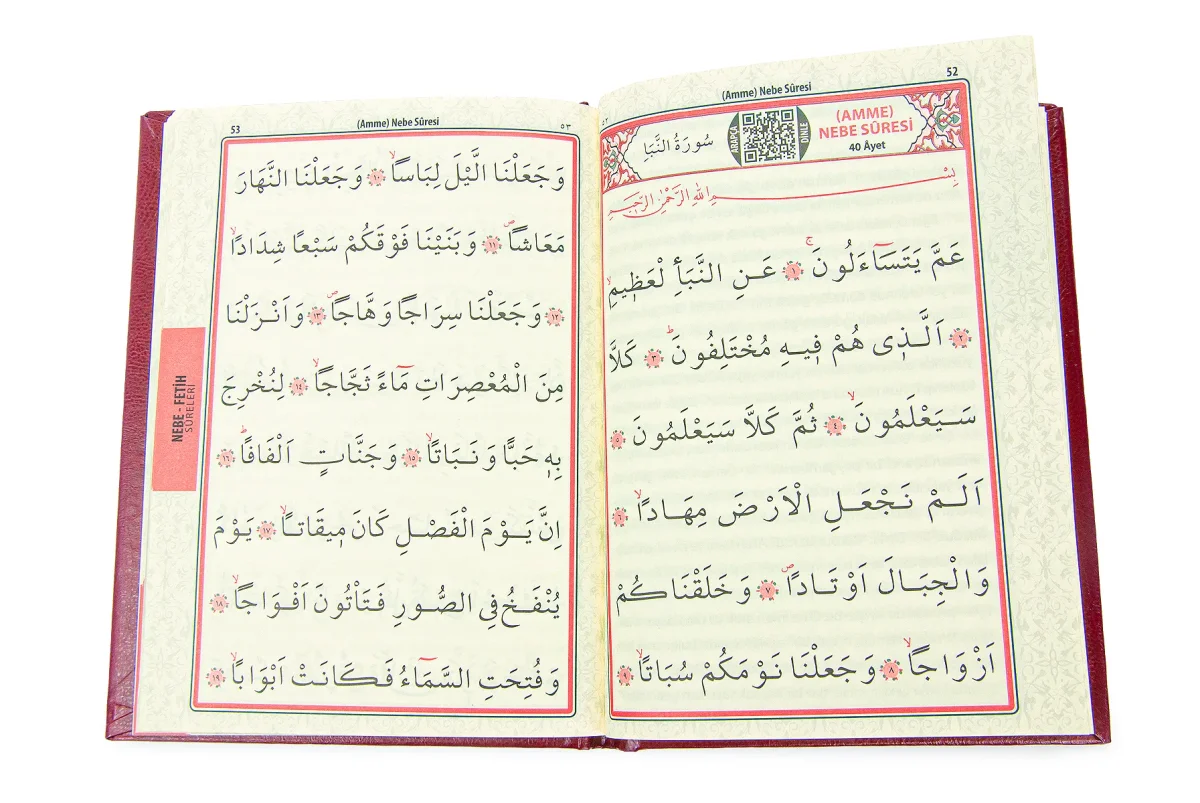 52
(Amme) Nebe Sûresi
٥٢
(AMME)
NEBE SÛRESİ
40 Âyet
ARAPÇA
DİNLE
سُورَةُ النَّبَأِ
بِسْمِ اللهِ الرَّحْمٰنِ الرَّحِيمِ
عَمَّ يَتَسَٓاءَلُونَۚ ﴿١﴾ عَنِ النَّبَأِ لْعَظِيمِۙ
﴿٢﴾ اَلَّذِى هُمْ فِيهِ مُخْتَلِفُونَۜ ﴿٣﴾ كَلَّا
سَيَعْلَمُونَۙ ﴿٤﴾ ثُمَّ كَلَّا سَيَعْلَمُونَ ﴿٥﴾
اَلَمْ نَجْعَلِ الْاَرْضَ مِهَادًاۙ ﴿٦﴾
وَالْجِبَالَ اَوْتَادًاۖ ﴿٧﴾ وَخَلَقْنَاكُمْ
اَزْوَاجًاۙ ﴿٨﴾ وَجَعَلْنَا نَوْمَكُمْ سُبَاتًاۙ ﴿٩﴾
53
(Amme) Nebe Sûresi
٥٣
وَجَعَلْنَا الَّيْلَ لِبَاسًاۙ ﴿١٠﴾ وَجَعَلْنَا النَّهَارَ
مَعَاشًاۖ ﴿١١﴾ وَبَنَيْنَا فَوْقَكُمْ سَبْعًا شِدَادًاۙ
﴿١٢﴾ وَجَعَلْنَا سِرَاجًا وَهَّاجًاۖ ﴿١٣﴾ وَاَنْزَلْنَا
مِنَ الْمُعْصِرَاتِ مَٓاءً ثَجَّاجًاۙ ﴿١٤﴾ لِنُخْرِجَ
بِهِ حَبًّا وَنَبَاتًاۙ ﴿١٥﴾ وَجَنَّاتٍ اَلْفَافًاۜ ﴿١٦﴾
اِنَّ يَوْمَ الْفَصْلِ كَانَ مِيقَاتًاۙ ﴿١٧﴾ يَوْمَ
يُنْفَخُ فِى الصُّورِ فَتَأْتُونَ اَفْوَاجًاۙ ﴿١٨﴾
وَفُتِحَتِ السَّمَٓاءُ فَكَانَتْ اَبْوَابًاۙ ﴿١٩﴾
NEBE - FETİH
SÛRELERİ